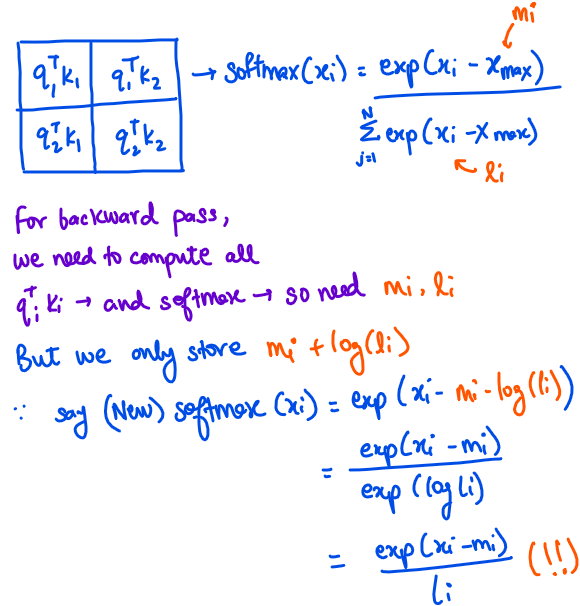 mi
q₁ᵀk₁ q₁ᵀk₂ → softmax(xi) = exp(xi - xmax)
q₂ᵀk₁ q₂ᵀk₂ N Σ j=1 exp(xi - Xmax)
li
For backward pass,
we need to compute all
qᵢᵀ ki → and softmax → so need mi, li
But we only store mi + log(li)
∵ say (New) softmax (xi) = exp (xi - mi - log(li))
= exp(xi - mi)
exp (log li)
= exp(xi - mi) (!!)
li